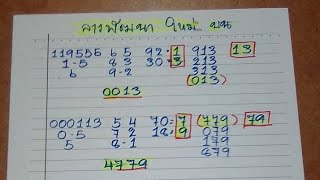 ลาวพัฒนา ใหม่ บน
119556 6 5 92=1 913 13
1-5 8 3 30=3 213
6 9-2 313
(013)
0013
000113 5 4 70=7 (779) 79
0-5 7 2 18=9 079
5 8-1 179
679
4779